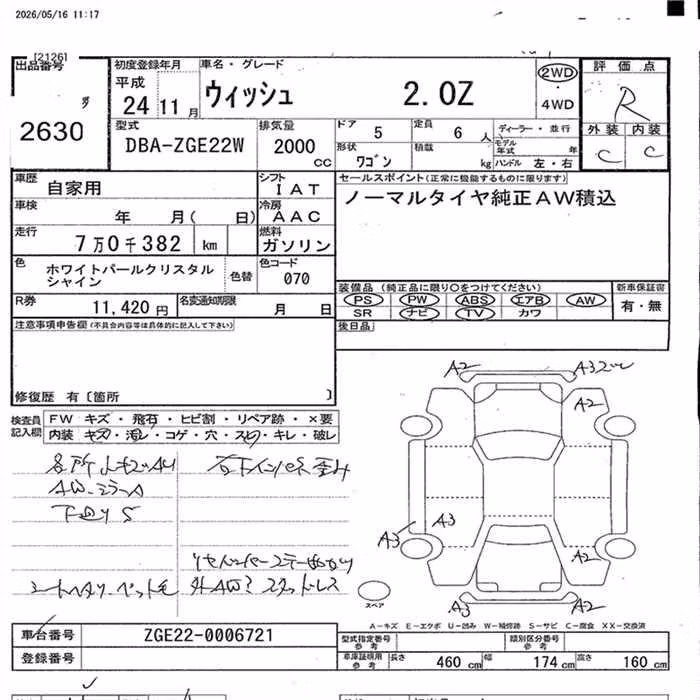 2026/05/16 11:17
[2126]
出品番号
2630
初度登録年月
平成
24 11月
車名・グレード
ウィッシュ 2.0Z
2WD
4WD
評価点
R
外装 内装
C C
型式
DBA-ZGE22W
排気量
2000 cc
ドア 5
定員 6 人
形状 ワゴン
積載 kg
ディーラー・並行
モデル年式 年
ハンドル 左・右
車歴 自家用
シフト IAT
車検 年 月( 日)
冷房 AAC
走行 7万0千382 km
燃料 ガソリン
色 ホワイトパールクリスタルシャイン
色替
色コード 070
R券 11,420円
名変通知期限 月 日
セールスポイント(正常に機能するものに限ります)
ノーマルタイヤ純正AW積込
装備品 (純正品に限り○をつけてください)
PS PW ABS エアB AW
SR ナビ TV カワ
新車保証書
有・無
後日品
注意事項申告欄(不具合内容等は具体的に記入して下さい)
修復歴 有〔箇所 〕
検査員記入欄
FW キズ・飛石・ヒビ割・リペア跡・×要
内装 キズ・汚レ・コゲ・穴・スレ・キレ・破レ
A2
A2
A3
A3
A2
A3
A2
スペア
A-キズ E-エクボ U-凹み W-補修跡 S-サビ C-腐食 XX-交換済
車台番号 ZGE22-0006721
登録番号
型式指定番号 参考
類別区分番号 参考
車庫証明用 参考
長さ 460 cm
幅 174 cm
高さ 160 cm